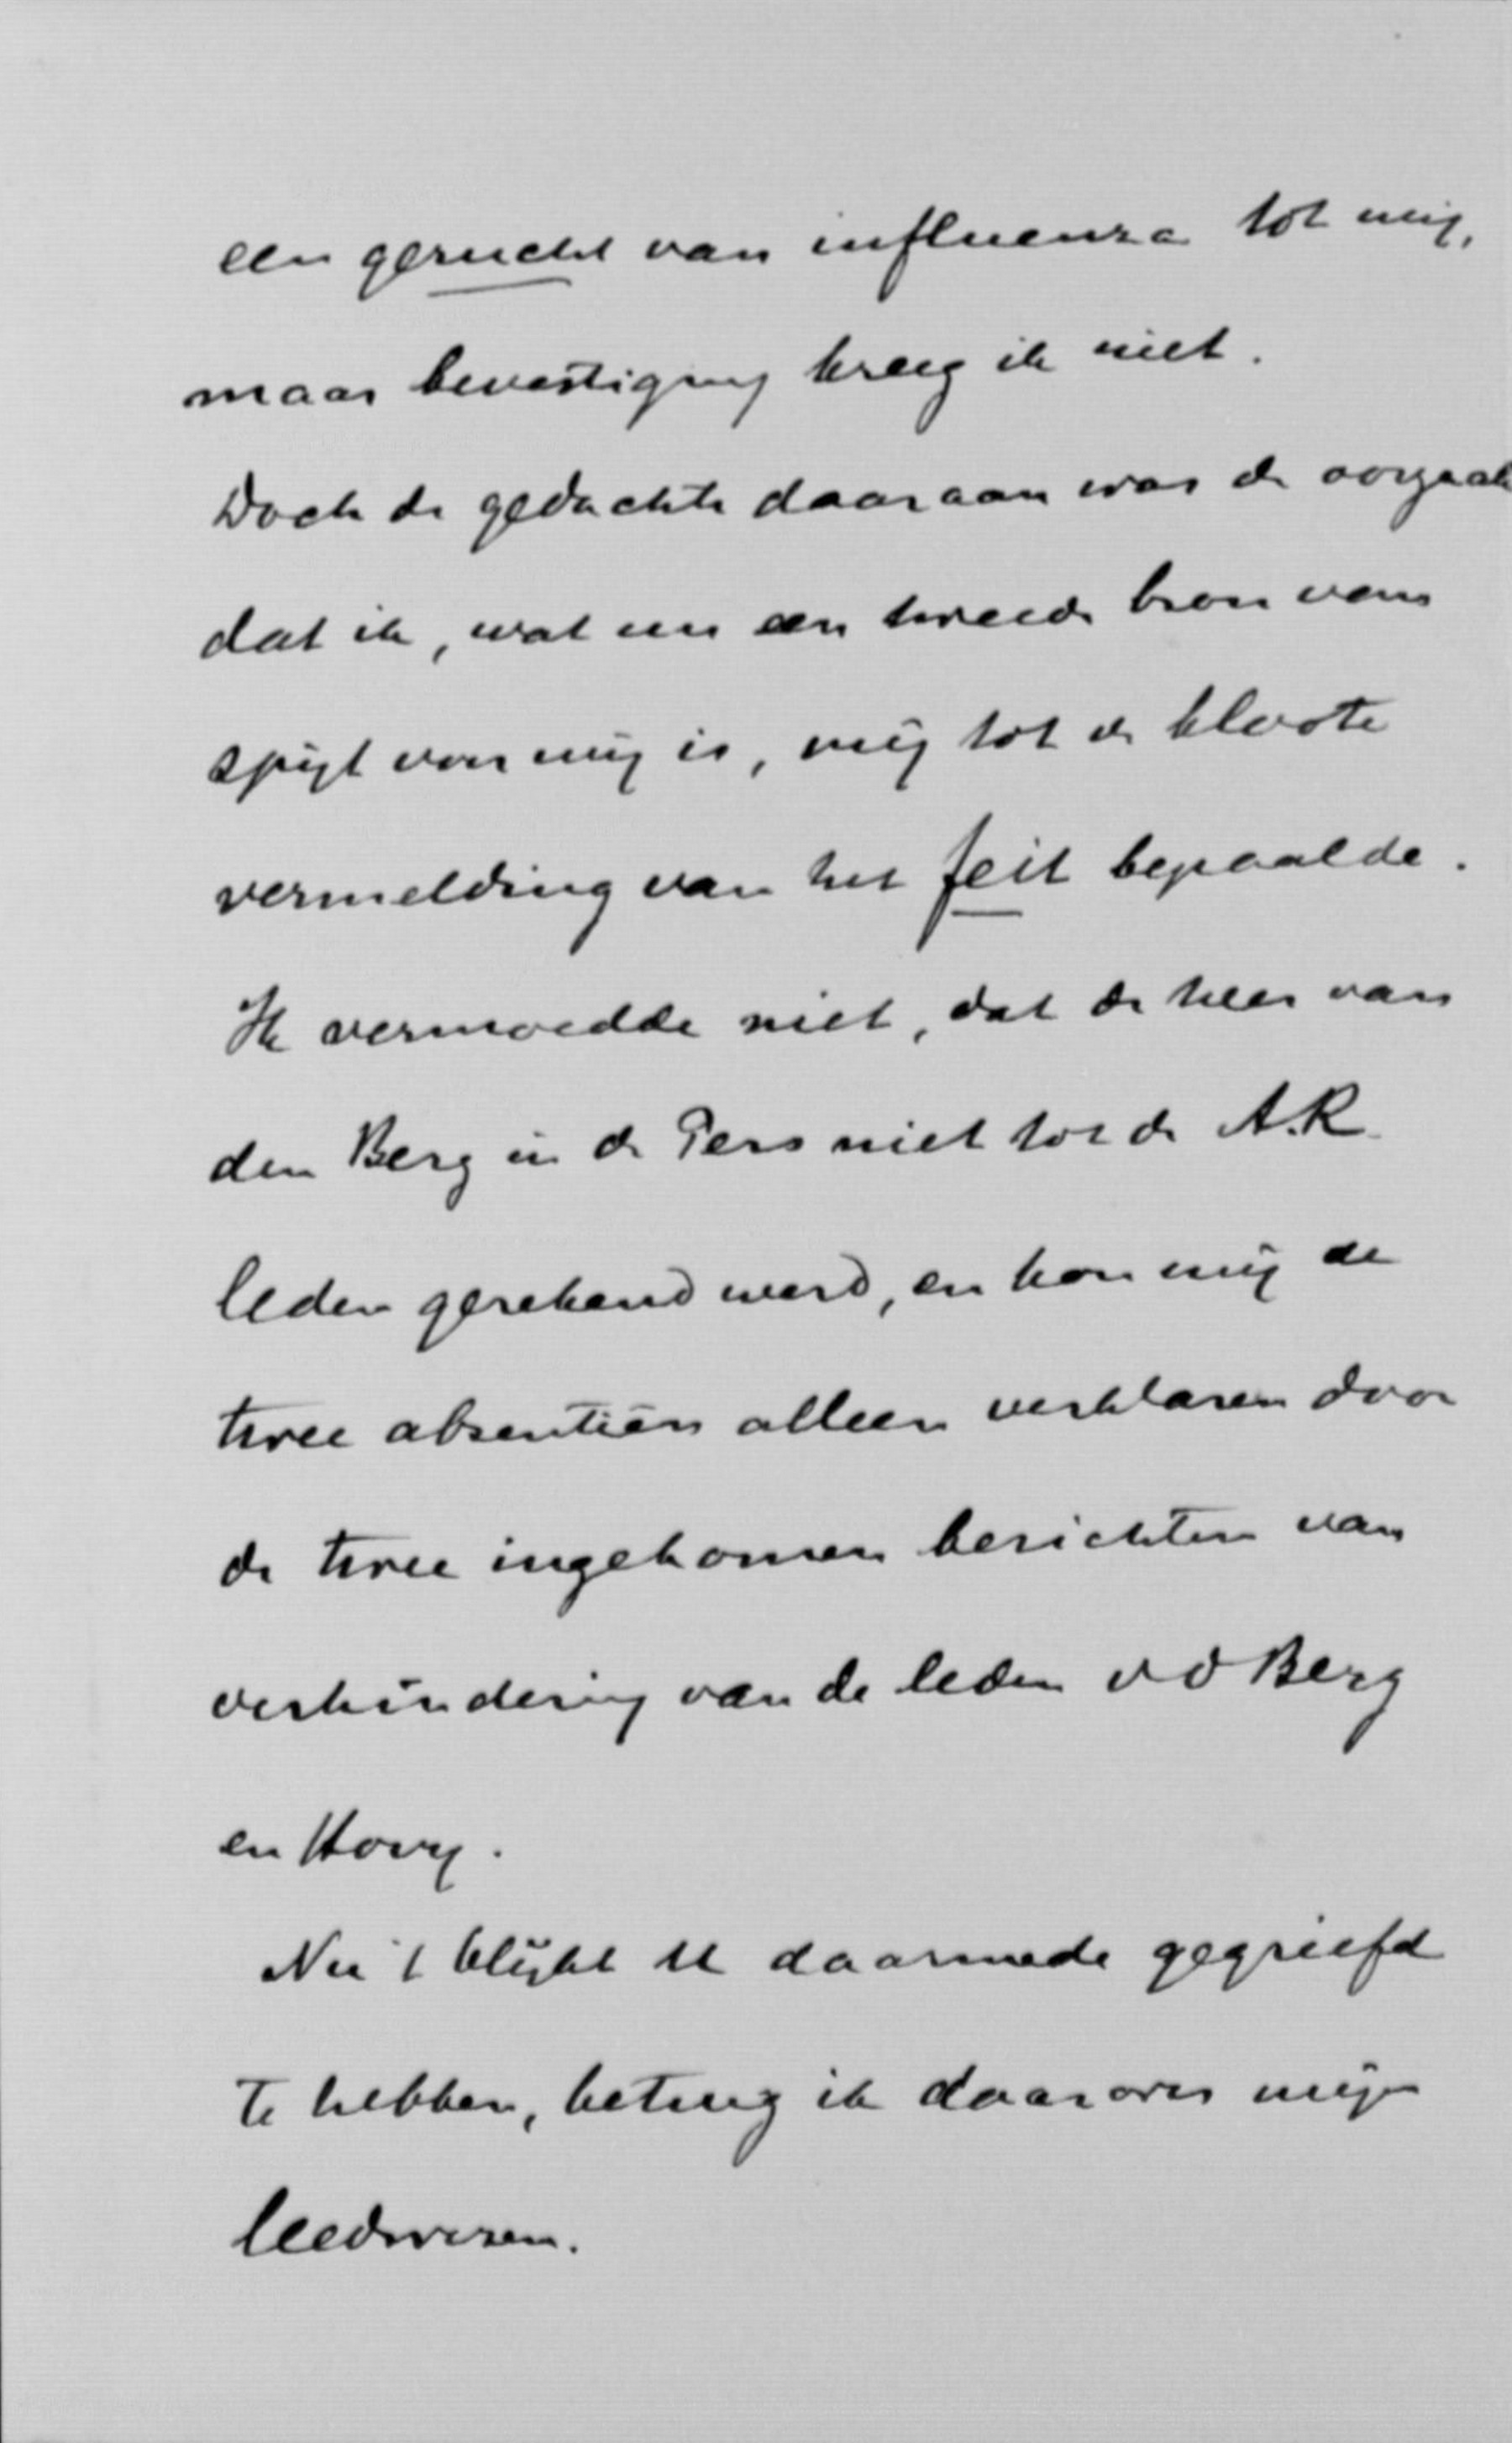 een gerucht van influenza tot mij,
maar bevestiging kreeg ik niet.
Doch de gedachte daaraan was de oorzaak
dat ik, wat nu een tweede bron van
spijt voor mij is, mij tot de bloote
vermelding van het feit bepaalde.
Ik vermoedde niet, dat de heer van
den Berg in de Pers niet tot de A.R.
leden gerekend werd, en kon mij de
twee absentiën alleen verklaren door
de twee ingekomen berichten van
verhindering van de leden v d Berg
en Hovy.
Nu 't blijkt U daarmede gegriefd
te hebben, betuig ik daarover mijn
leedwezen.